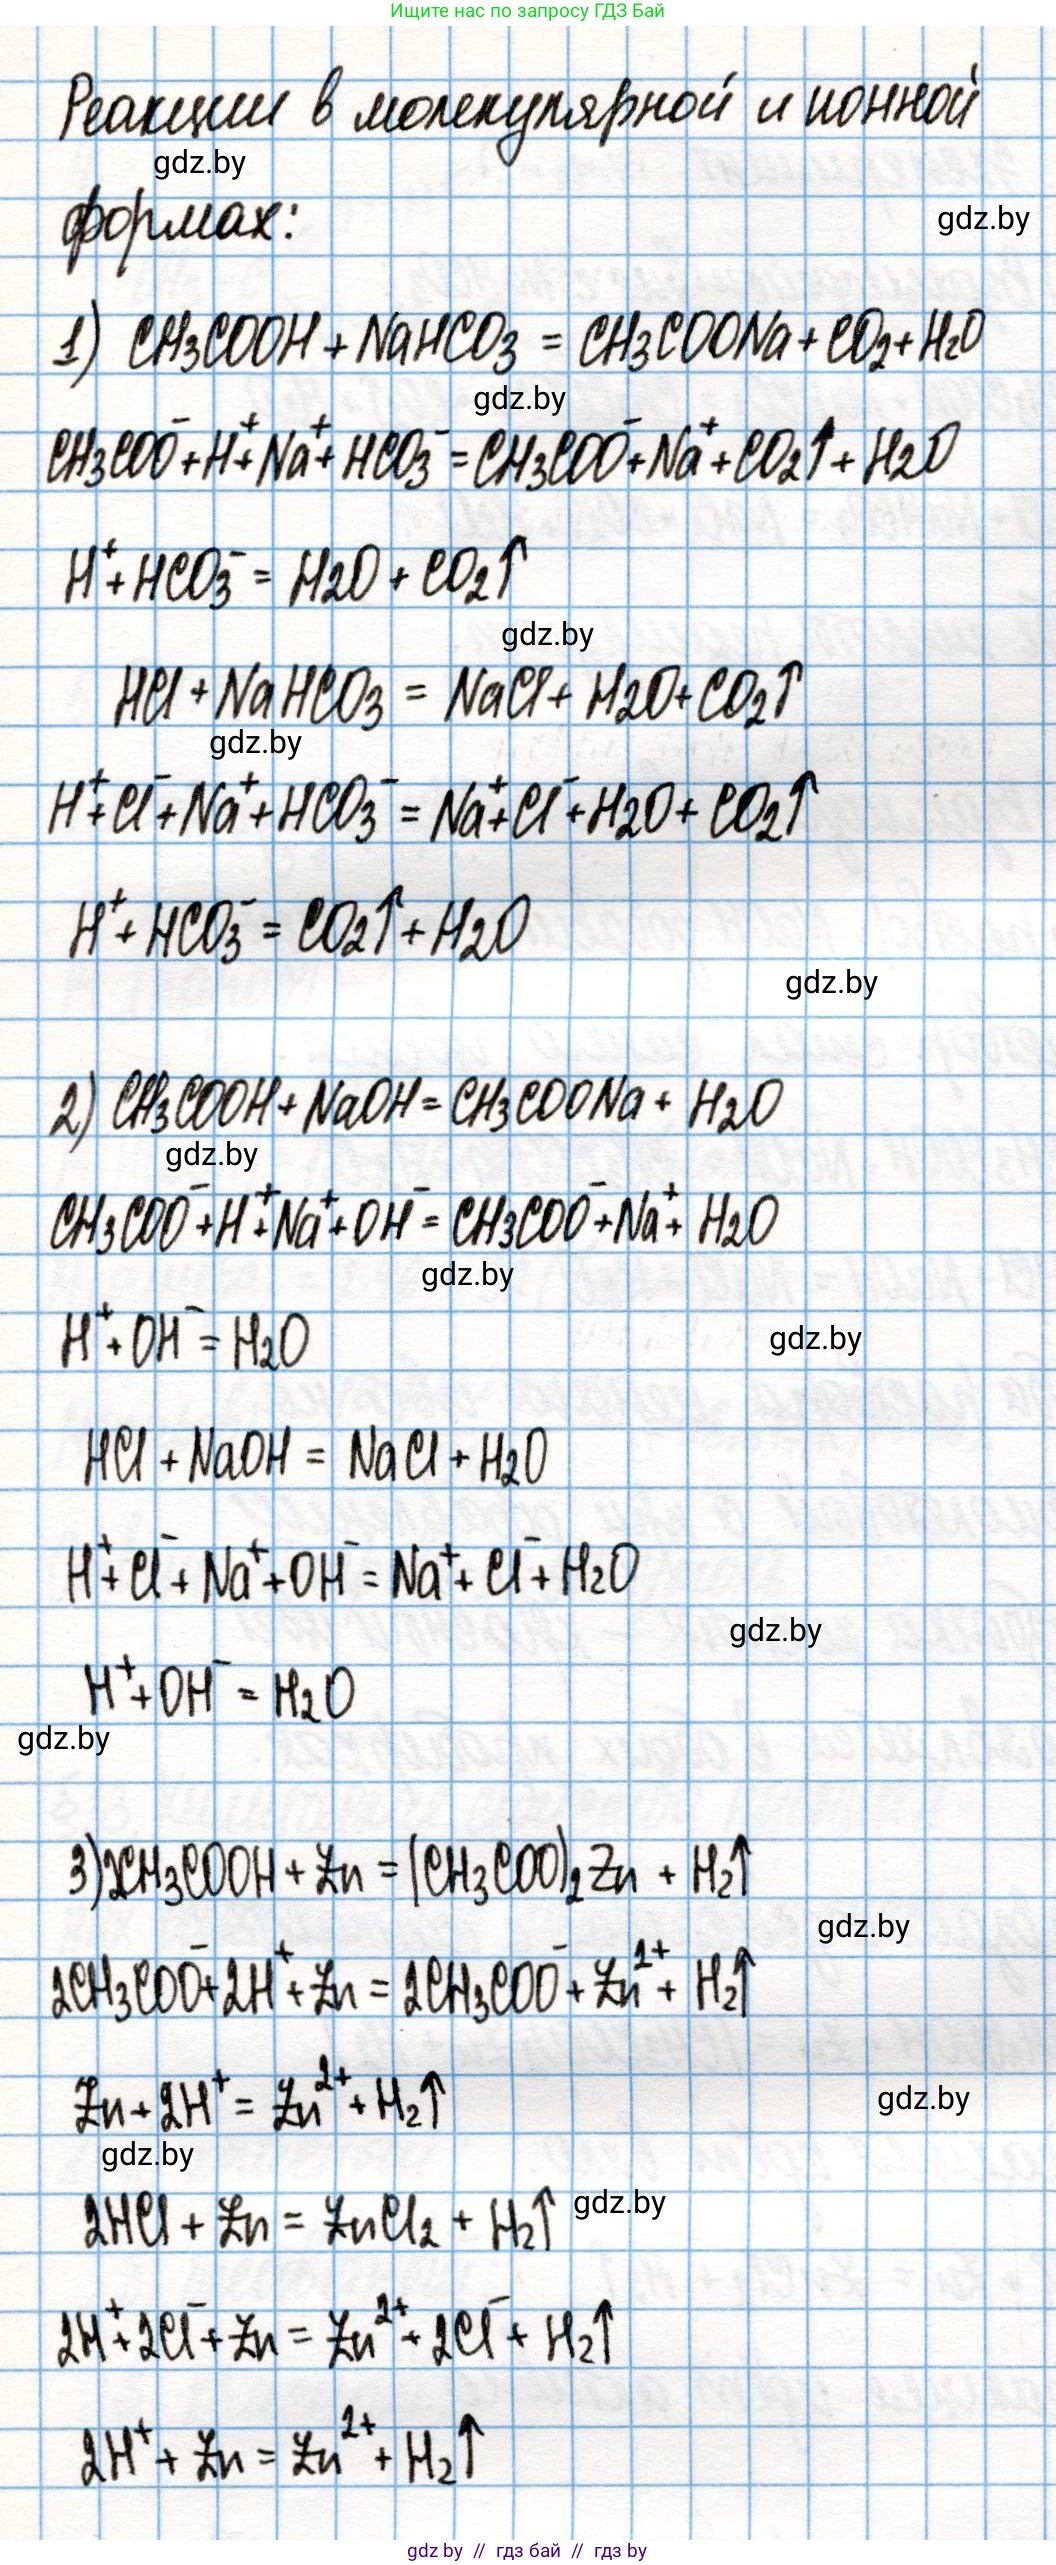 Ищите нас по запросу ГДЗ Бай
Реакции в молекулярной и ионной
gdz.by
формах:
gdz.by
1) CH₃COOH + NaHCO₃ = CH₃COONa + CO₂ + H₂O
gdz.by
CH₃COO⁻ + H⁺ + Na⁺ + HCO₃⁻ = CH₃COO⁻ + Na⁺ + CO₂↑ + H₂O
H⁺ + HCO₃⁻ = H₂O + CO₂↑
gdz.by
HCl + NaHCO₃ = NaCl + H₂O + CO₂↑
gdz.by
H⁺ + Cl⁻ + Na⁺ + HCO₃⁻ = Na⁺ + Cl⁻ + H₂O + CO₂↑
H⁺ + HCO₃⁻ = CO₂↑ + H₂O
gdz.by
2) CH₃COOH + NaOH = CH₃COONa + H₂O
gdz.by
CH₃COO⁻ + H⁺ + Na⁺ + OH⁻ = CH₃COO⁻ + Na⁺ + H₂O
gdz.by
H⁺ + OH⁻ = H₂O
gdz.by
HCl + NaOH = NaCl + H₂O
H⁺ + Cl⁻ + Na⁺ + OH⁻ = Na⁺ + Cl⁻ + H₂O
gdz.by
H⁺ + OH⁻ = H₂O
gdz.by
3) 2CH₃COOH + Zn = (CH₃COO)₂Zn + H₂↑
gdz.by
2CH₃COO⁻ + 2H⁺ + Zn = 2CH₃COO⁻ + Zn²⁺ + H₂↑
Zn + 2H⁺ = Zn²⁺ + H₂↑
gdz.by
gdz.by
2HCl + Zn = ZnCl₂ + H₂↑
gdz.by
2H⁺ + 2Cl⁻ + Zn = Zn²⁺ + 2Cl⁻ + H₂↑
2H⁺ + Zn = Zn²⁺ + H₂↑
gdz by // гдз бай // гдз by